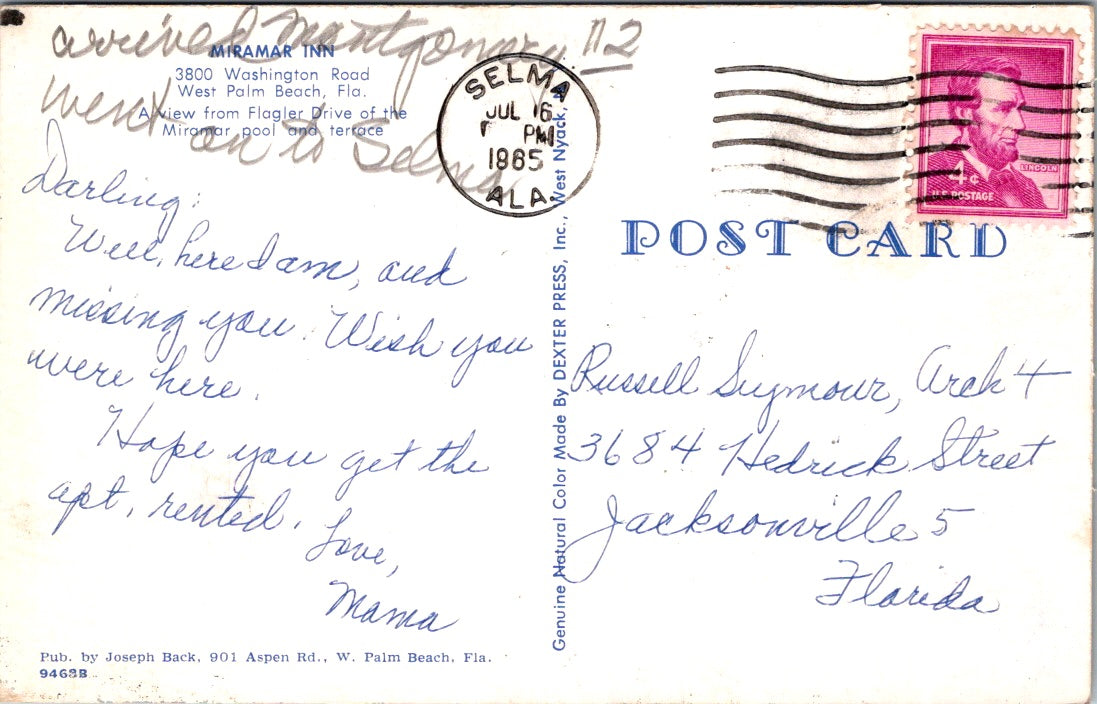 arrived Montgomery #2
went on to Selma.
MIRAMAR INN
3800 Washington Road
West Palm Beach, Fla.
A view from Flagler Drive of the
Miramar pool and terrace
Darling:
Well, here I am, and
missing you. Wish you
were here.
Hope you get the
apt. rented.
Love,
Mama
Pub. by Joseph Back, 901 Aspen Rd., W. Palm Beach, Fla.
9468B
Genuine Natural Color Made By DEXTER PRESS, Inc., West Nyack,
SELMA
JUL 16
PM
1965
ALA.
4¢
LINCOLN
U.S. POSTAGE
POST CARD
Russell Seymour, Arch 4
3684 Hedrick Street
Jacksonville 5
Florida